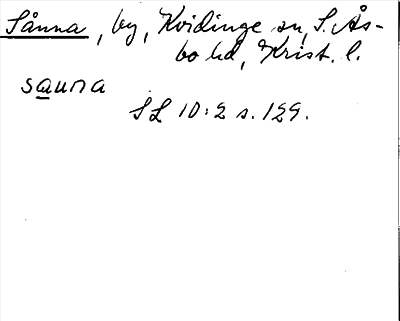 Sånna, by, Kvidinge sn, S. Ås-
bo hd, Krist. l.
sauna
SL 10:2 s. 129.